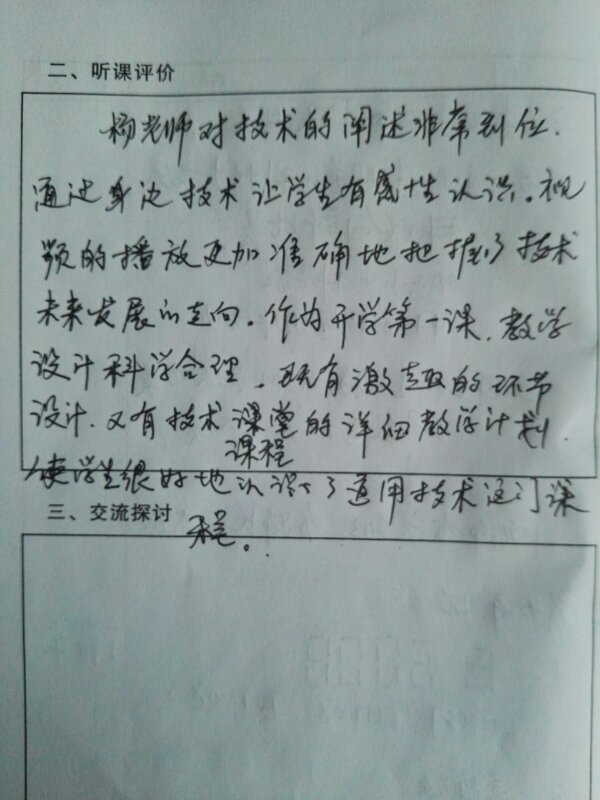 二、听课评价
杨老师对技术的阐述非常到位.
通过身边技术让学生有感性认识。视
频的播放更加准确地把握了技术
未来发展的走向。作为开学第一课.教学
设计科学合理.既有激趣的环节
设计.又有技术课堂的详细教学计划.
课程
使学生很好地认识了通用技术这门课
三、交流探讨
程。